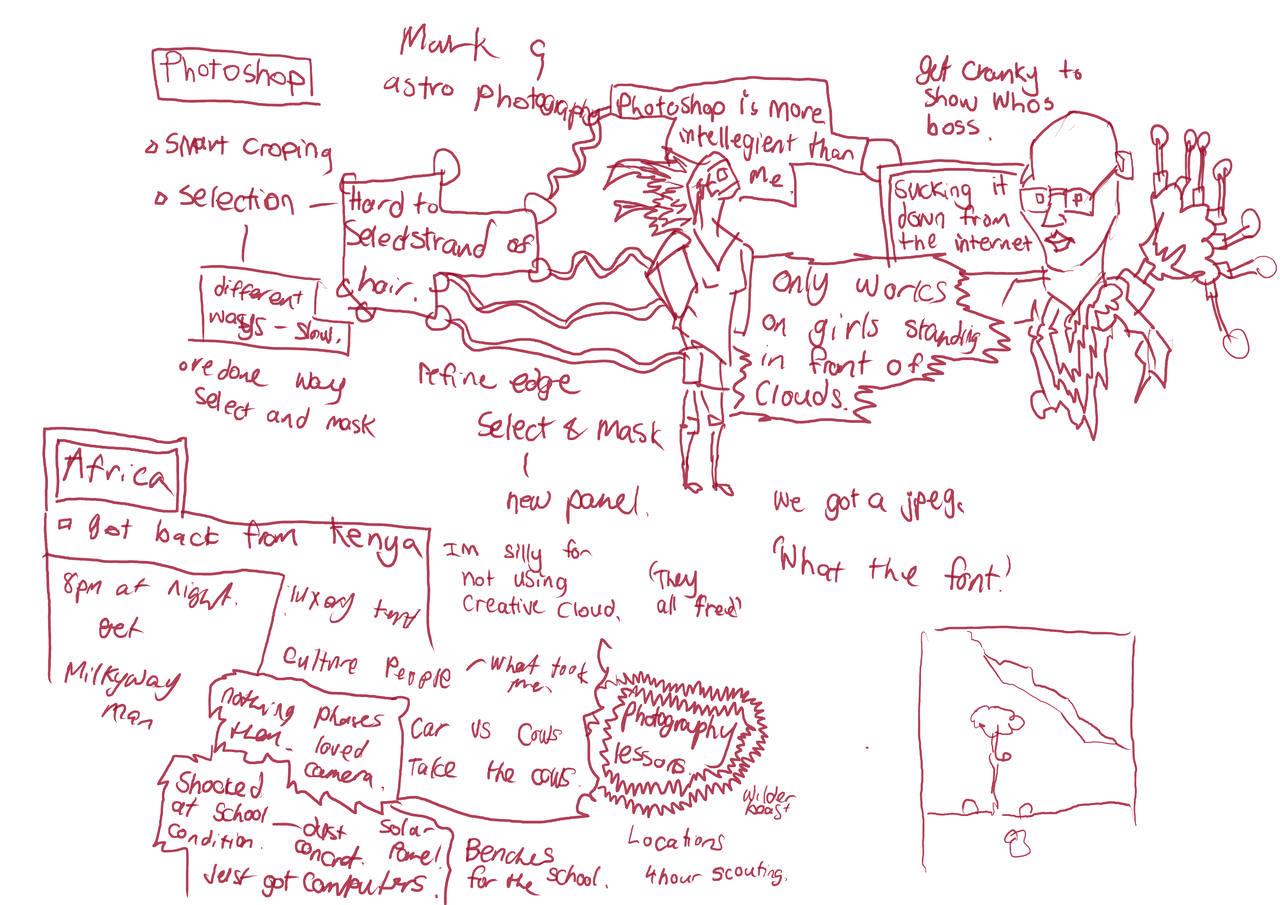 Photoshop
Smart Croping
Selection
different
ways - slow.
one done way
Select and mask
Mark G
astro Photography
Hard to
Select strand of
hair.
Photoshop is more
intellegient than
me.
get cranky to
show whos
boss.
Sucking it
down from
the internet
Only works
on girls standing
in front of
Clouds.
refine edge
Select & mask
new panel.
We got a jpeg.
'What the font!'
Im silly for
not using
Creative Cloud.
'They
all fred'
Africa
got back from Kenya
8pm at night.
Get
Milkyway
man
luxory tent
Culture People - what took
me.
nothing phases
them - loved
camera.
Car vs Cows
Take the cows.
Photography
lessons
Shocked
at school
condition.
dust
concret.
solar
Panel
Just got Computers.
Benches
for the school.
Wilder
beast
Locations
4hour scouting.